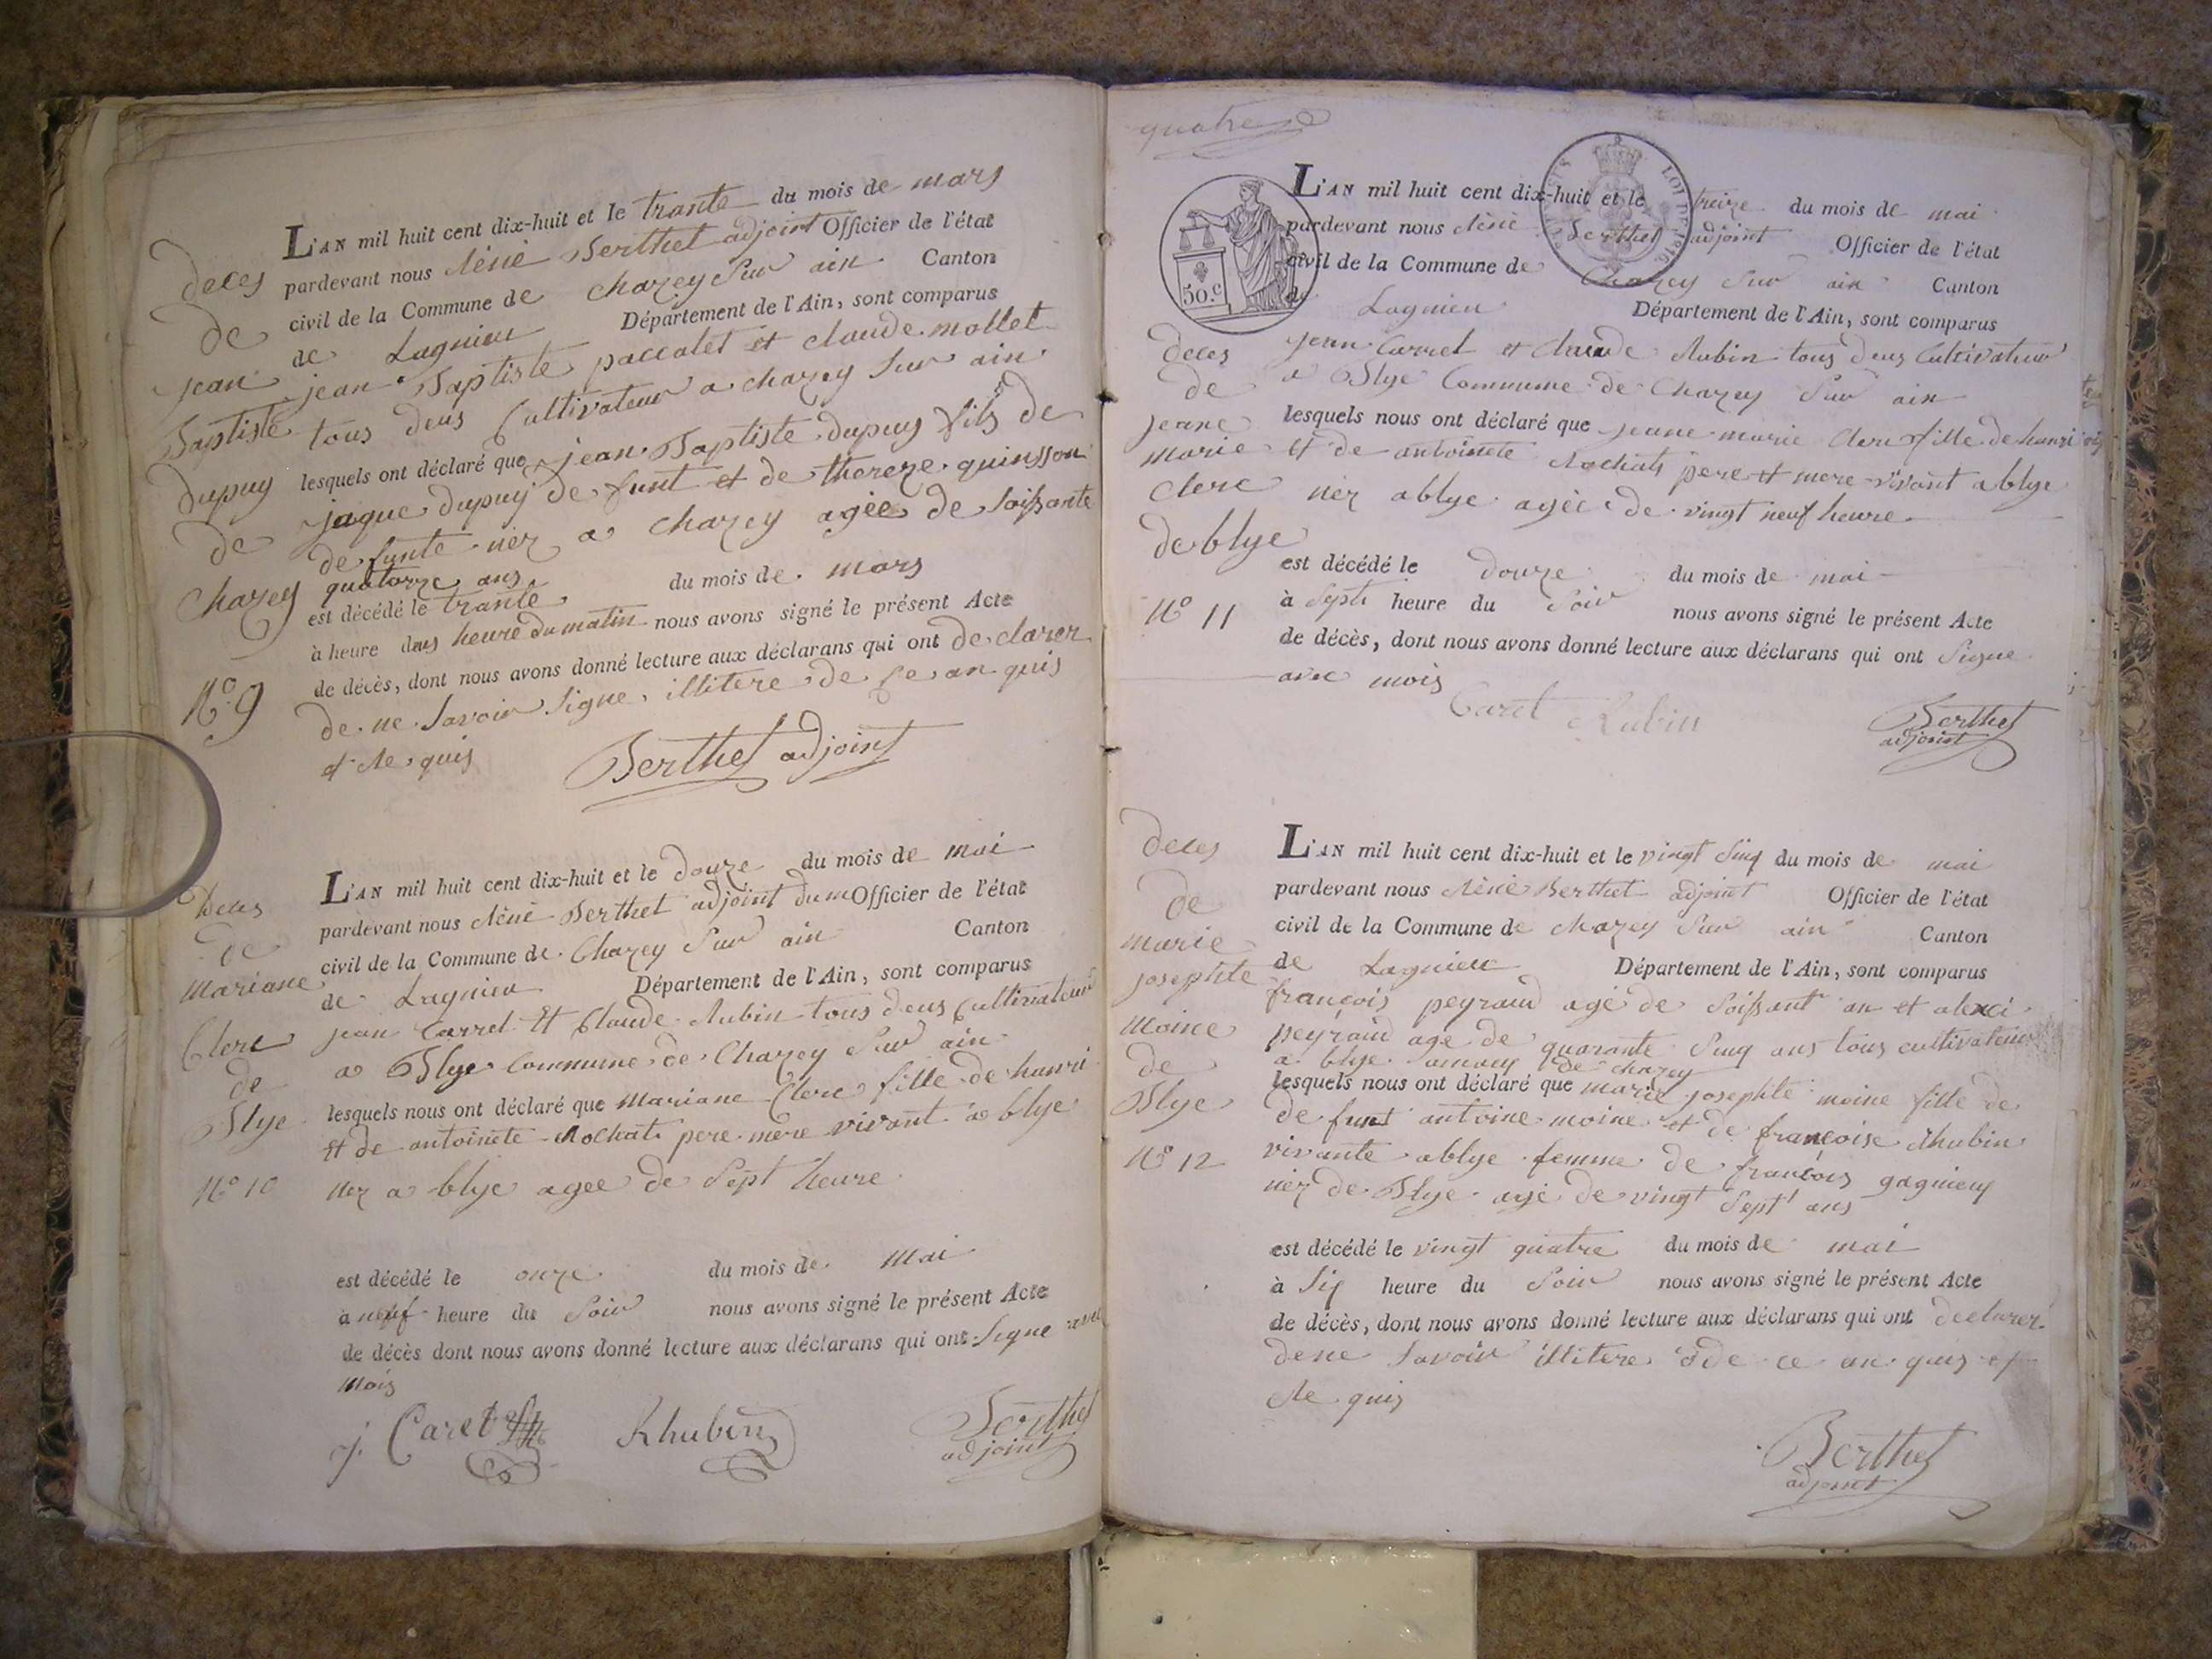 Deces
de
jean
Baptiste
dupuy
de
Chazey
N.o 9
L'AN mil huit cent dix-huit et le trante du mois de mars
pardevant nous Réné Berthet adjoint Officier de l'état
civil de la Commune de Chazey Sur ain Canton
de Lagnieu Département de l'Ain, sont comparus
jean Baptiste paccalet et claude mollet
tous deus Cultivateur a chazey Sur ain
lesquels ont déclaré que jean Baptiste dupuy fils de
jaque dupuy de funt et de thereze quinsson
de funte nez a chazey agée de soissante
quatorze ans
est décédé le trante du mois de mars
à heure deus heure du matin nous avons signé le présent Acte
de décès, dont nous avons donné lecture aux déclarans qui ont de clarer
de ne Savoir Signe illitere de Ce an quis
et Re quis
Berthet adjoint
Deces
de
Mariane
Clerc
de
Blye
N.o 10
L'AN mil huit cent dix-huit et le douze du mois de mai
pardevant nous Réné Berthet adjoint dum Officier de l'état
civil de la Commune de Chazey Sur ain Canton
de Lagnieu Département de l'Ain, sont comparus
jean Carret Et Claude Rubin tous deus Cultivateur
a Blye Commune de Chazey Sur ain
lesquels nous ont déclaré que Mariane Clerc fille de hanri
Et de antoinete Rochat pere mere vivant a blye
nez a blye agee de Sept heure
est décédé le onze du mois de Mai
à neuf heure du Soir nous avons signé le présent Acte
de décès dont nous avons donné lecture aux déclarans qui ont Signe avec
Mois
j. Caret Rhubin Berthet
adjoint
quatre
50.c
Deces
de
jeane
marie
Clerc
de blye
N.o 11
L'AN mil huit cent dix-huit et le treize du mois de mai
pardevant nous Réné Berthet adjoint Officier de l'état
civil de la Commune de Chazey Sur ain Canton
de Lagnieu Département de l'Ain, sont comparus
jean Carret et Claude Rubin tous deus Cultivateur
a Blye Commune de Chazey Sur ain
lesquels nous ont déclaré que jeane marie Clerc fille de hanri
Et de antoinete Rochat pere et mere vivant a blye
nez a blye agée de vingt neuf heure
est décédé le douze du mois de mai
à Sept heure du Soir nous avons signé le présent Acte
de décès, dont nous avons donné lecture aux déclarans qui ont Signe
avec mois
Caret Rubin Berthet
adjoint
Deces
de
marie
josephte
Moine
de
Blye
N.o 12
L'AN mil huit cent dix-huit et le vingt Sinq du mois de mai
pardevant nous Réné Berthet adjoint Officier de l'état
civil de la Commune de chazey Sur ain Canton
de Lagnieu Département de l'Ain, sont comparus
françois peyraud agé de Soissant an et alexci
peyraud age de quarante Sinq ans tous cultivateur
a blye de chazey
lesquels nous ont déclaré que marie josephte moine fille de
de funt antoine moine et de françoise Rhubin
vivante a blye femme de françois gagnieux
nez de Blye agé de vingt Sept ans
est décédé le vingt quatre du mois de mai
à Six heure du Soir nous avons signé le présent Acte
de décès, dont nous avons donné lecture aux déclarans qui ont declarer
de ne Savoir illitere de ce an quis et
Re quis
Berthet
adjoint